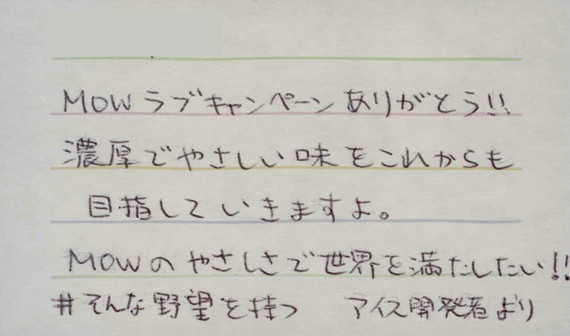 MOWラブキャンペーンありがとう!!
濃厚でやさしい味をこれからも
目指していきますよ。
MOWのやさしさで世界を満たしたい!!
#そんな野望を持つ アイス開発者より